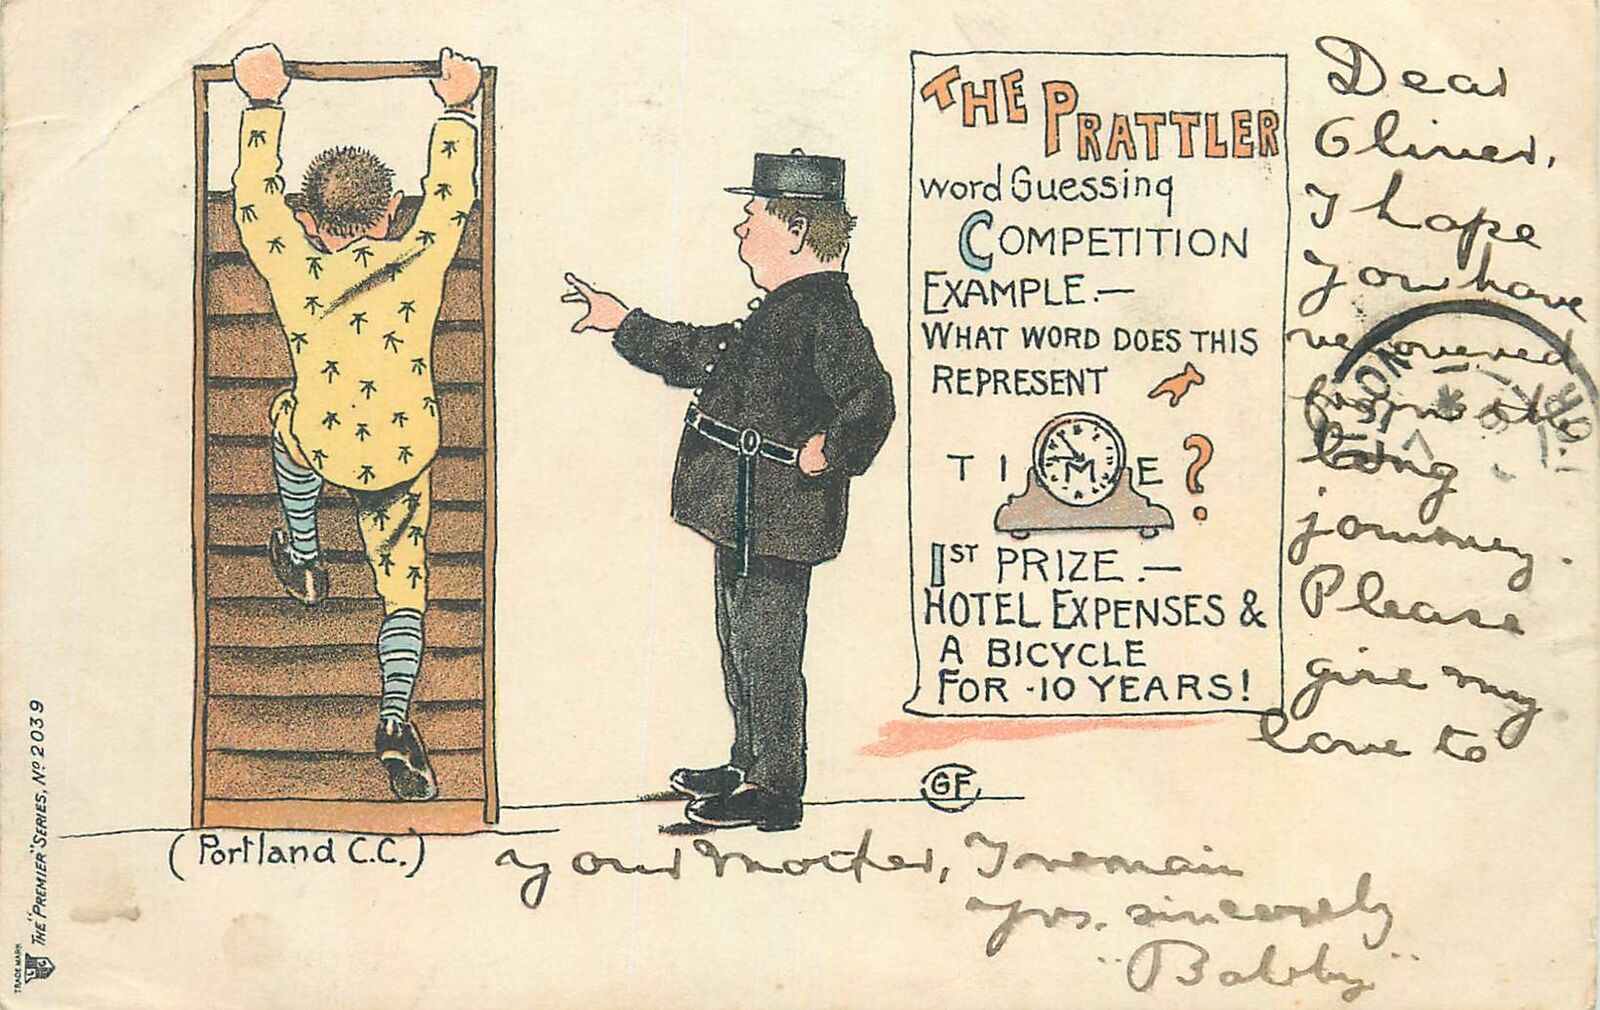 THE PRATTLER
word Guessing
COMPETITION
EXAMPLE.—
WHAT WORD DOES THIS
REPRESENT
T I M E ?
1ST PRIZE.—
HOTEL EXPENSES &
A BICYCLE
FOR -10 YEARS!
GF
(Portland C.C.)
TRADE MARK
THE "PREMIER" SERIES, No 2039
Dear
Oliver,
I hope
you have
recovered
from the
long
journey.
Please
give my
love to
your Mother, I remain
yrs. sincerely
"Bobby"